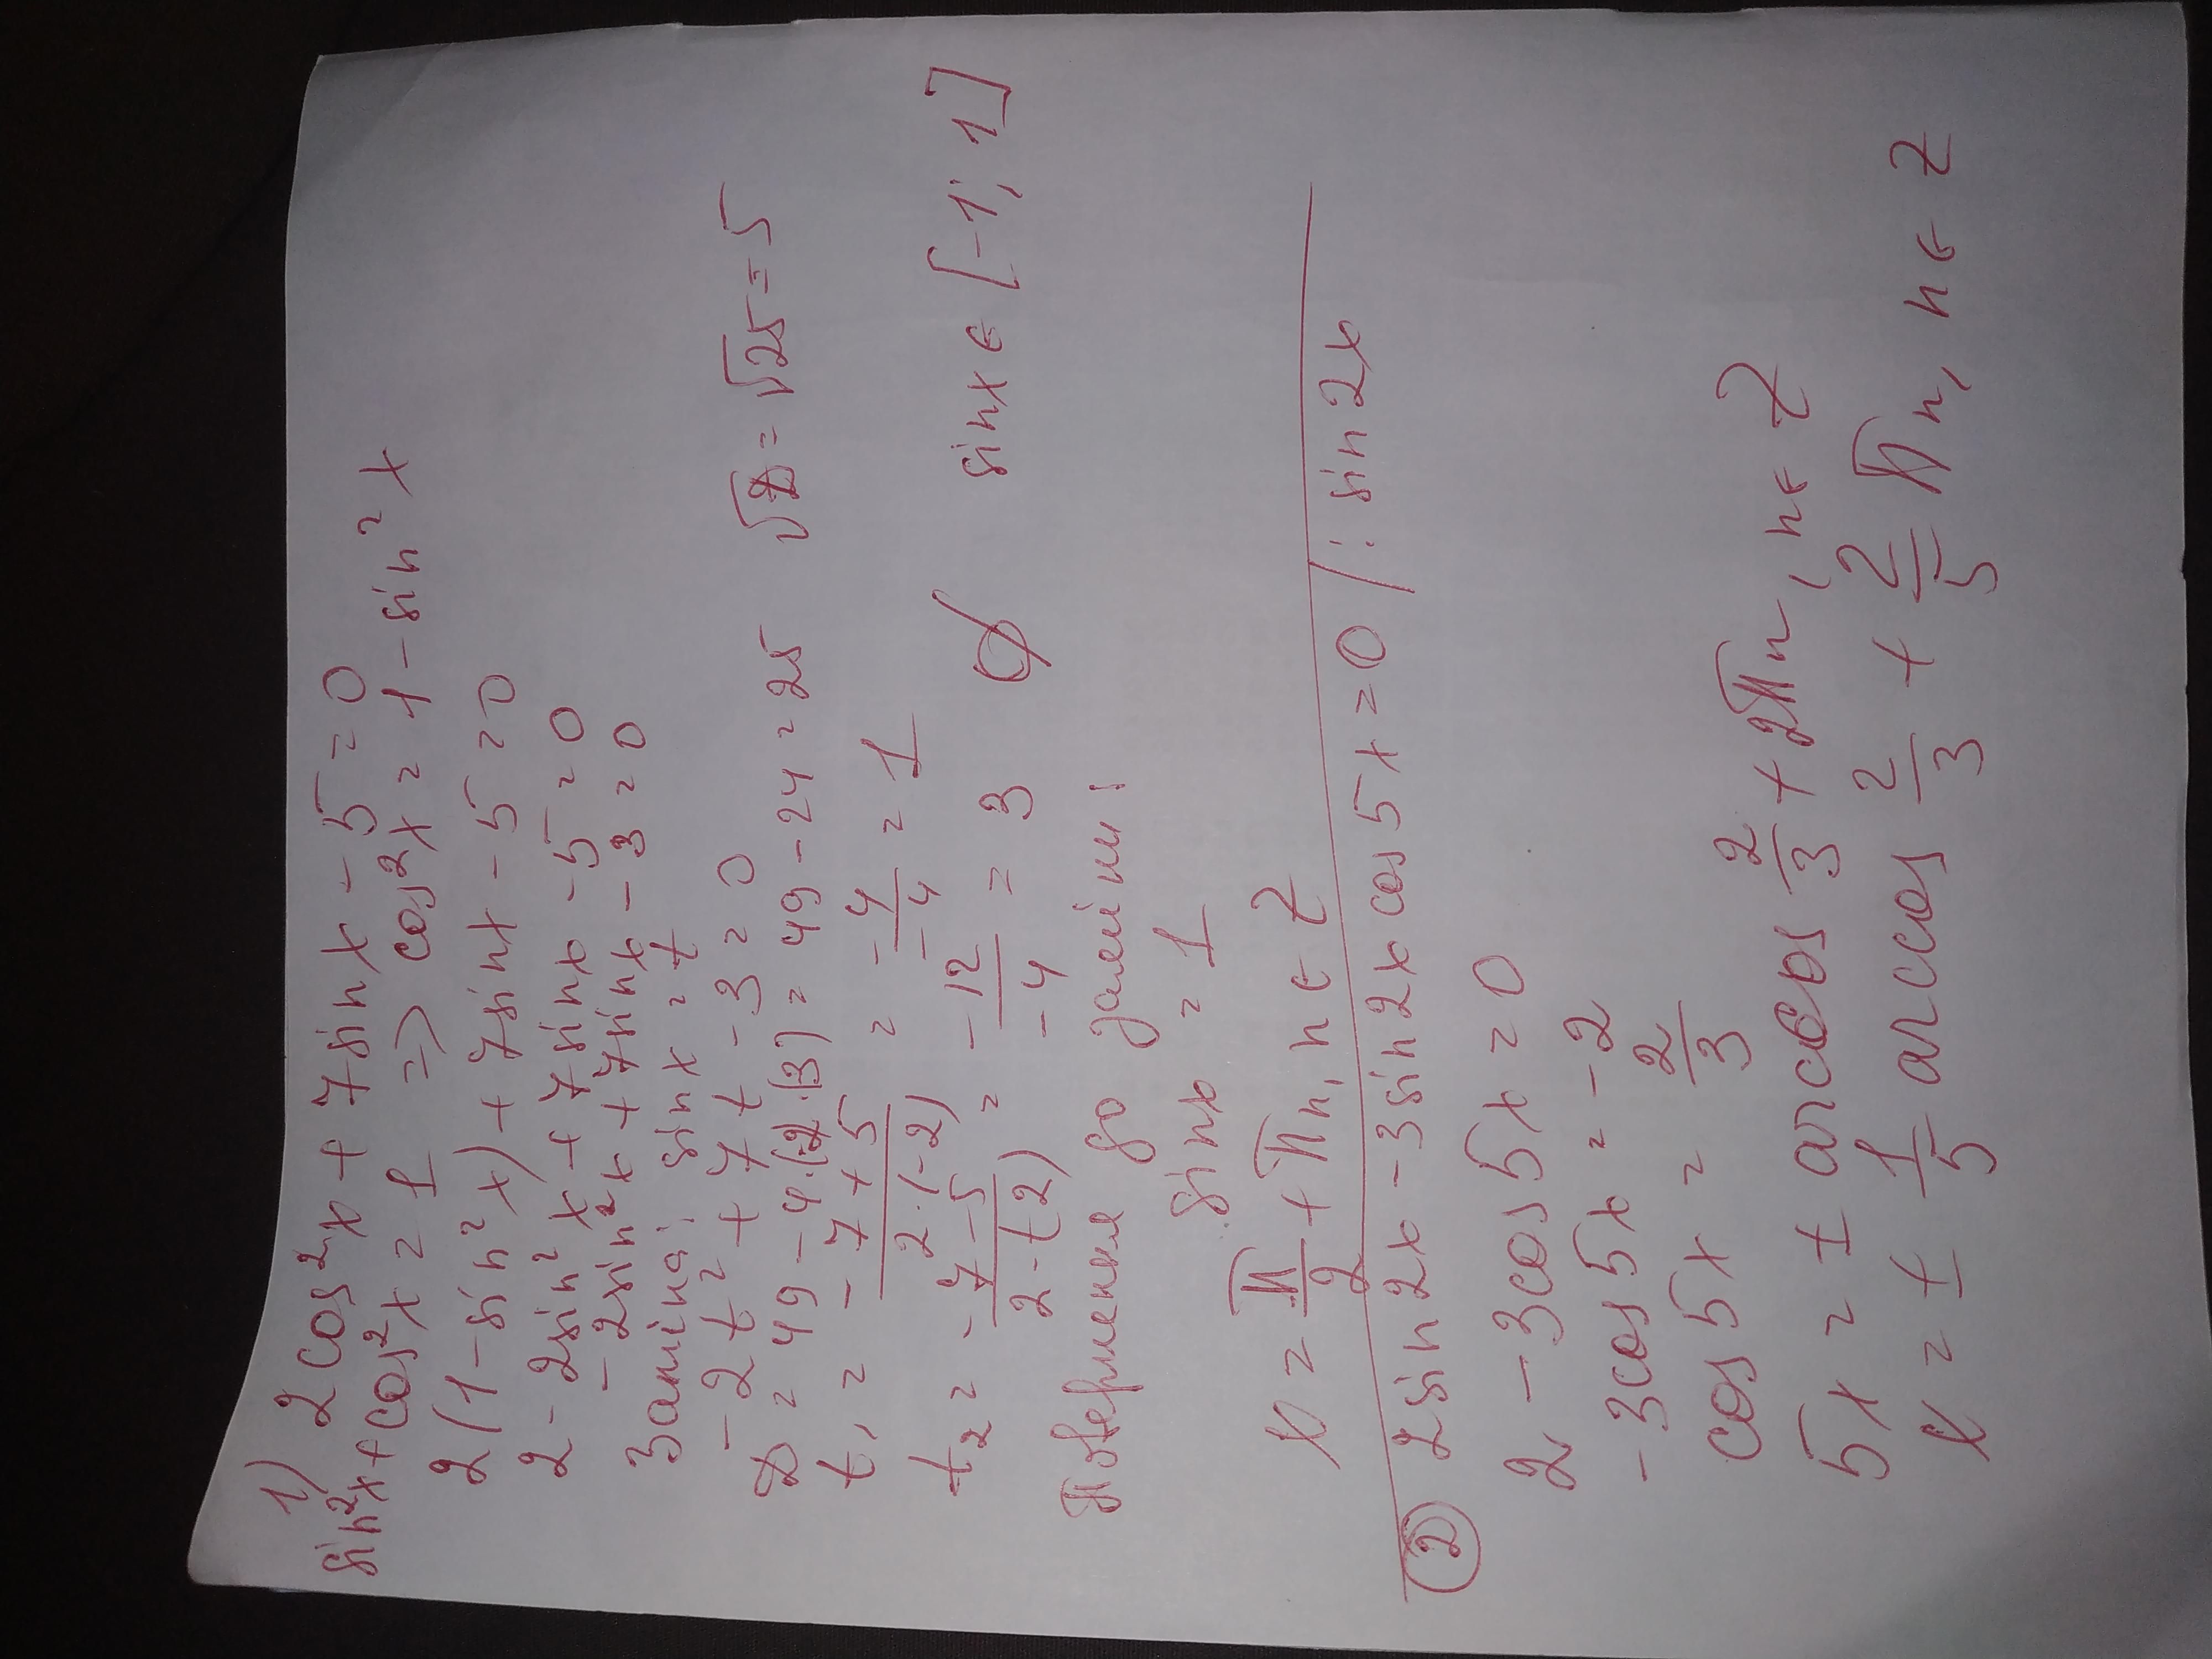 1) 2cos²x + 7sinx - 5 = 0
sin²x + cos²x = 1 => cos²x = 1 - sin²x
2(1 - sin²x) + 7sinx - 5 = 0
2 - 2sin²x + 7sinx - 5 = 0
- 2sin²x + 7sinx - 3 = 0
Заміна: sinx = t
-2t² + 7t - 3 = 0
D = 49 - 4·(-2)·(-3) = 49 - 24 = 25 √D = √25 = 5
t₁ = (-7+5)/(2·(-2)) = -4/-4 = 1
t₂ = (-7-5)/(2·(-2)) = -12/-4 = 3 ∅ sinx ∈ [-1; 1]
Повернення до заміни:
sinx = 1
x = π/2 + πn, n ∈ Z
② 2sin2x - 3sin2x cos5x = 0 /: sin2x
2 - 3cos5x = 0
-3cos5x = -2
cos5x = 2/3
5x = ± arccos 2/3 + 2πn, n ∈ Z
x = ± 1/5 arccos 2/3 + 2/5 πn, n ∈ Z